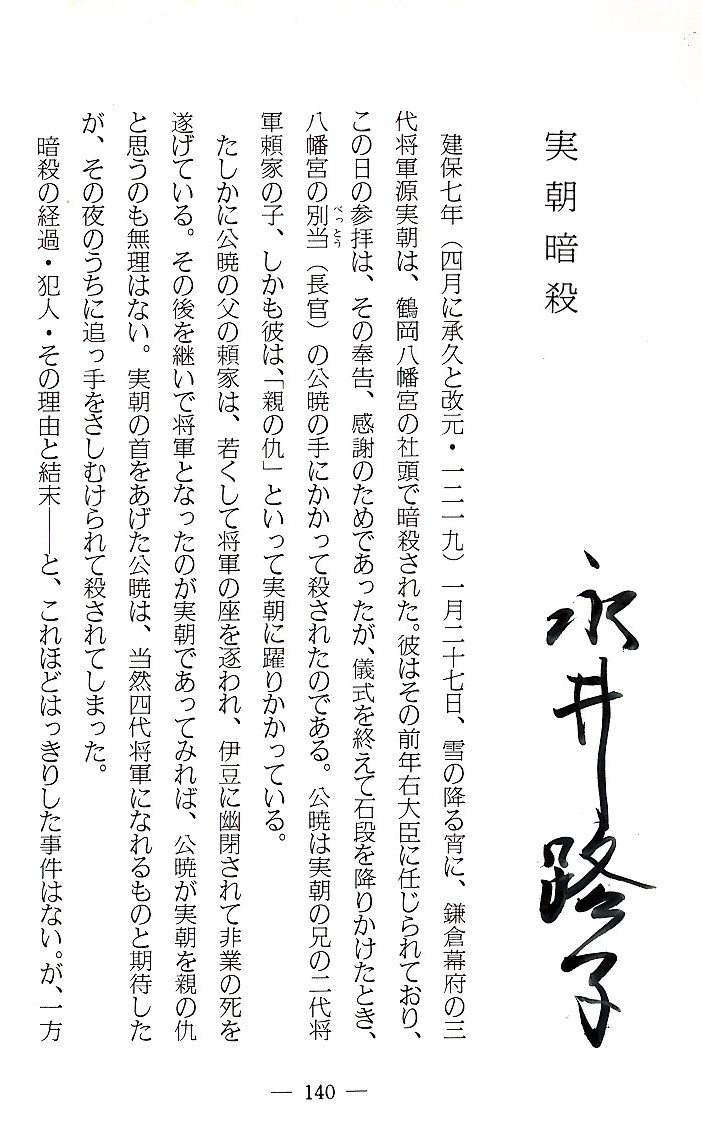 実朝暗殺
永井路子
建保七年（四月に承久と改元・一二一九）一月二十七日、雪の降る宵に、鎌倉幕府の三
代将軍源実朝は、鶴岡八幡宮の社頭で暗殺された。彼はその前年右大臣に任じられており、
この日の参拝は、その奉告、感謝のためであったが、儀式を終えて石段を降りかけたとき、
八幡宮の別当（長官）の公暁の手にかかって殺されたのである。公暁は実朝の兄の二代将
べっとう
軍頼家の子、しかも彼は、「親の仇」といって実朝に躍りかかっている。
たしかに公暁の父の頼家は、若くして将軍の座を逐われ、伊豆に幽閉されて非業の死を
遂げている。その後を継いで将軍となったのが実朝であってみれば、公暁が実朝を親の仇
と思うのも無理はない。実朝の首をあげた公暁は、当然四代将軍になれるものと期待した
が、その夜のうちに追っ手をさしむけられて殺されてしまった。
暗殺の経過・犯人・その理由と結末――と、これほどはっきりした事件はない。が、一方
— 140 —